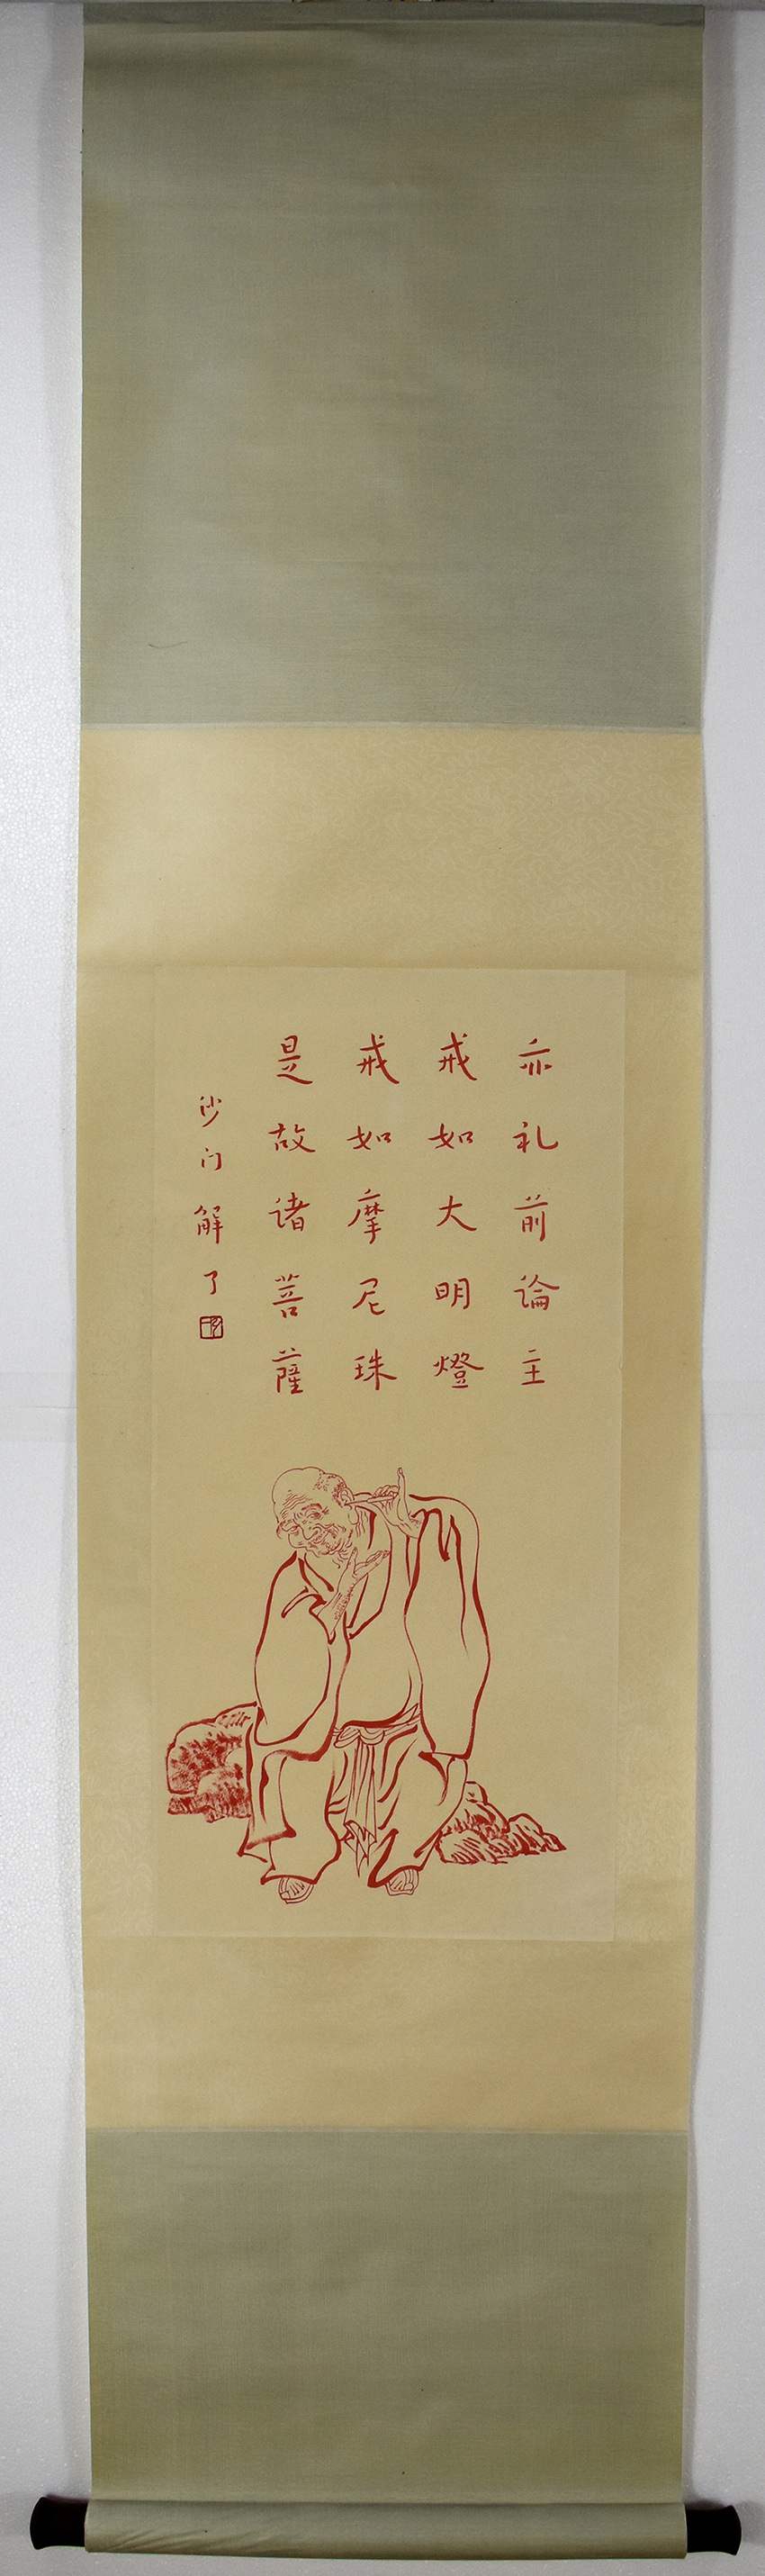 亦礼前论主
戒如大明燈
戒如摩尼珠
是故诸菩薩
沙门解了